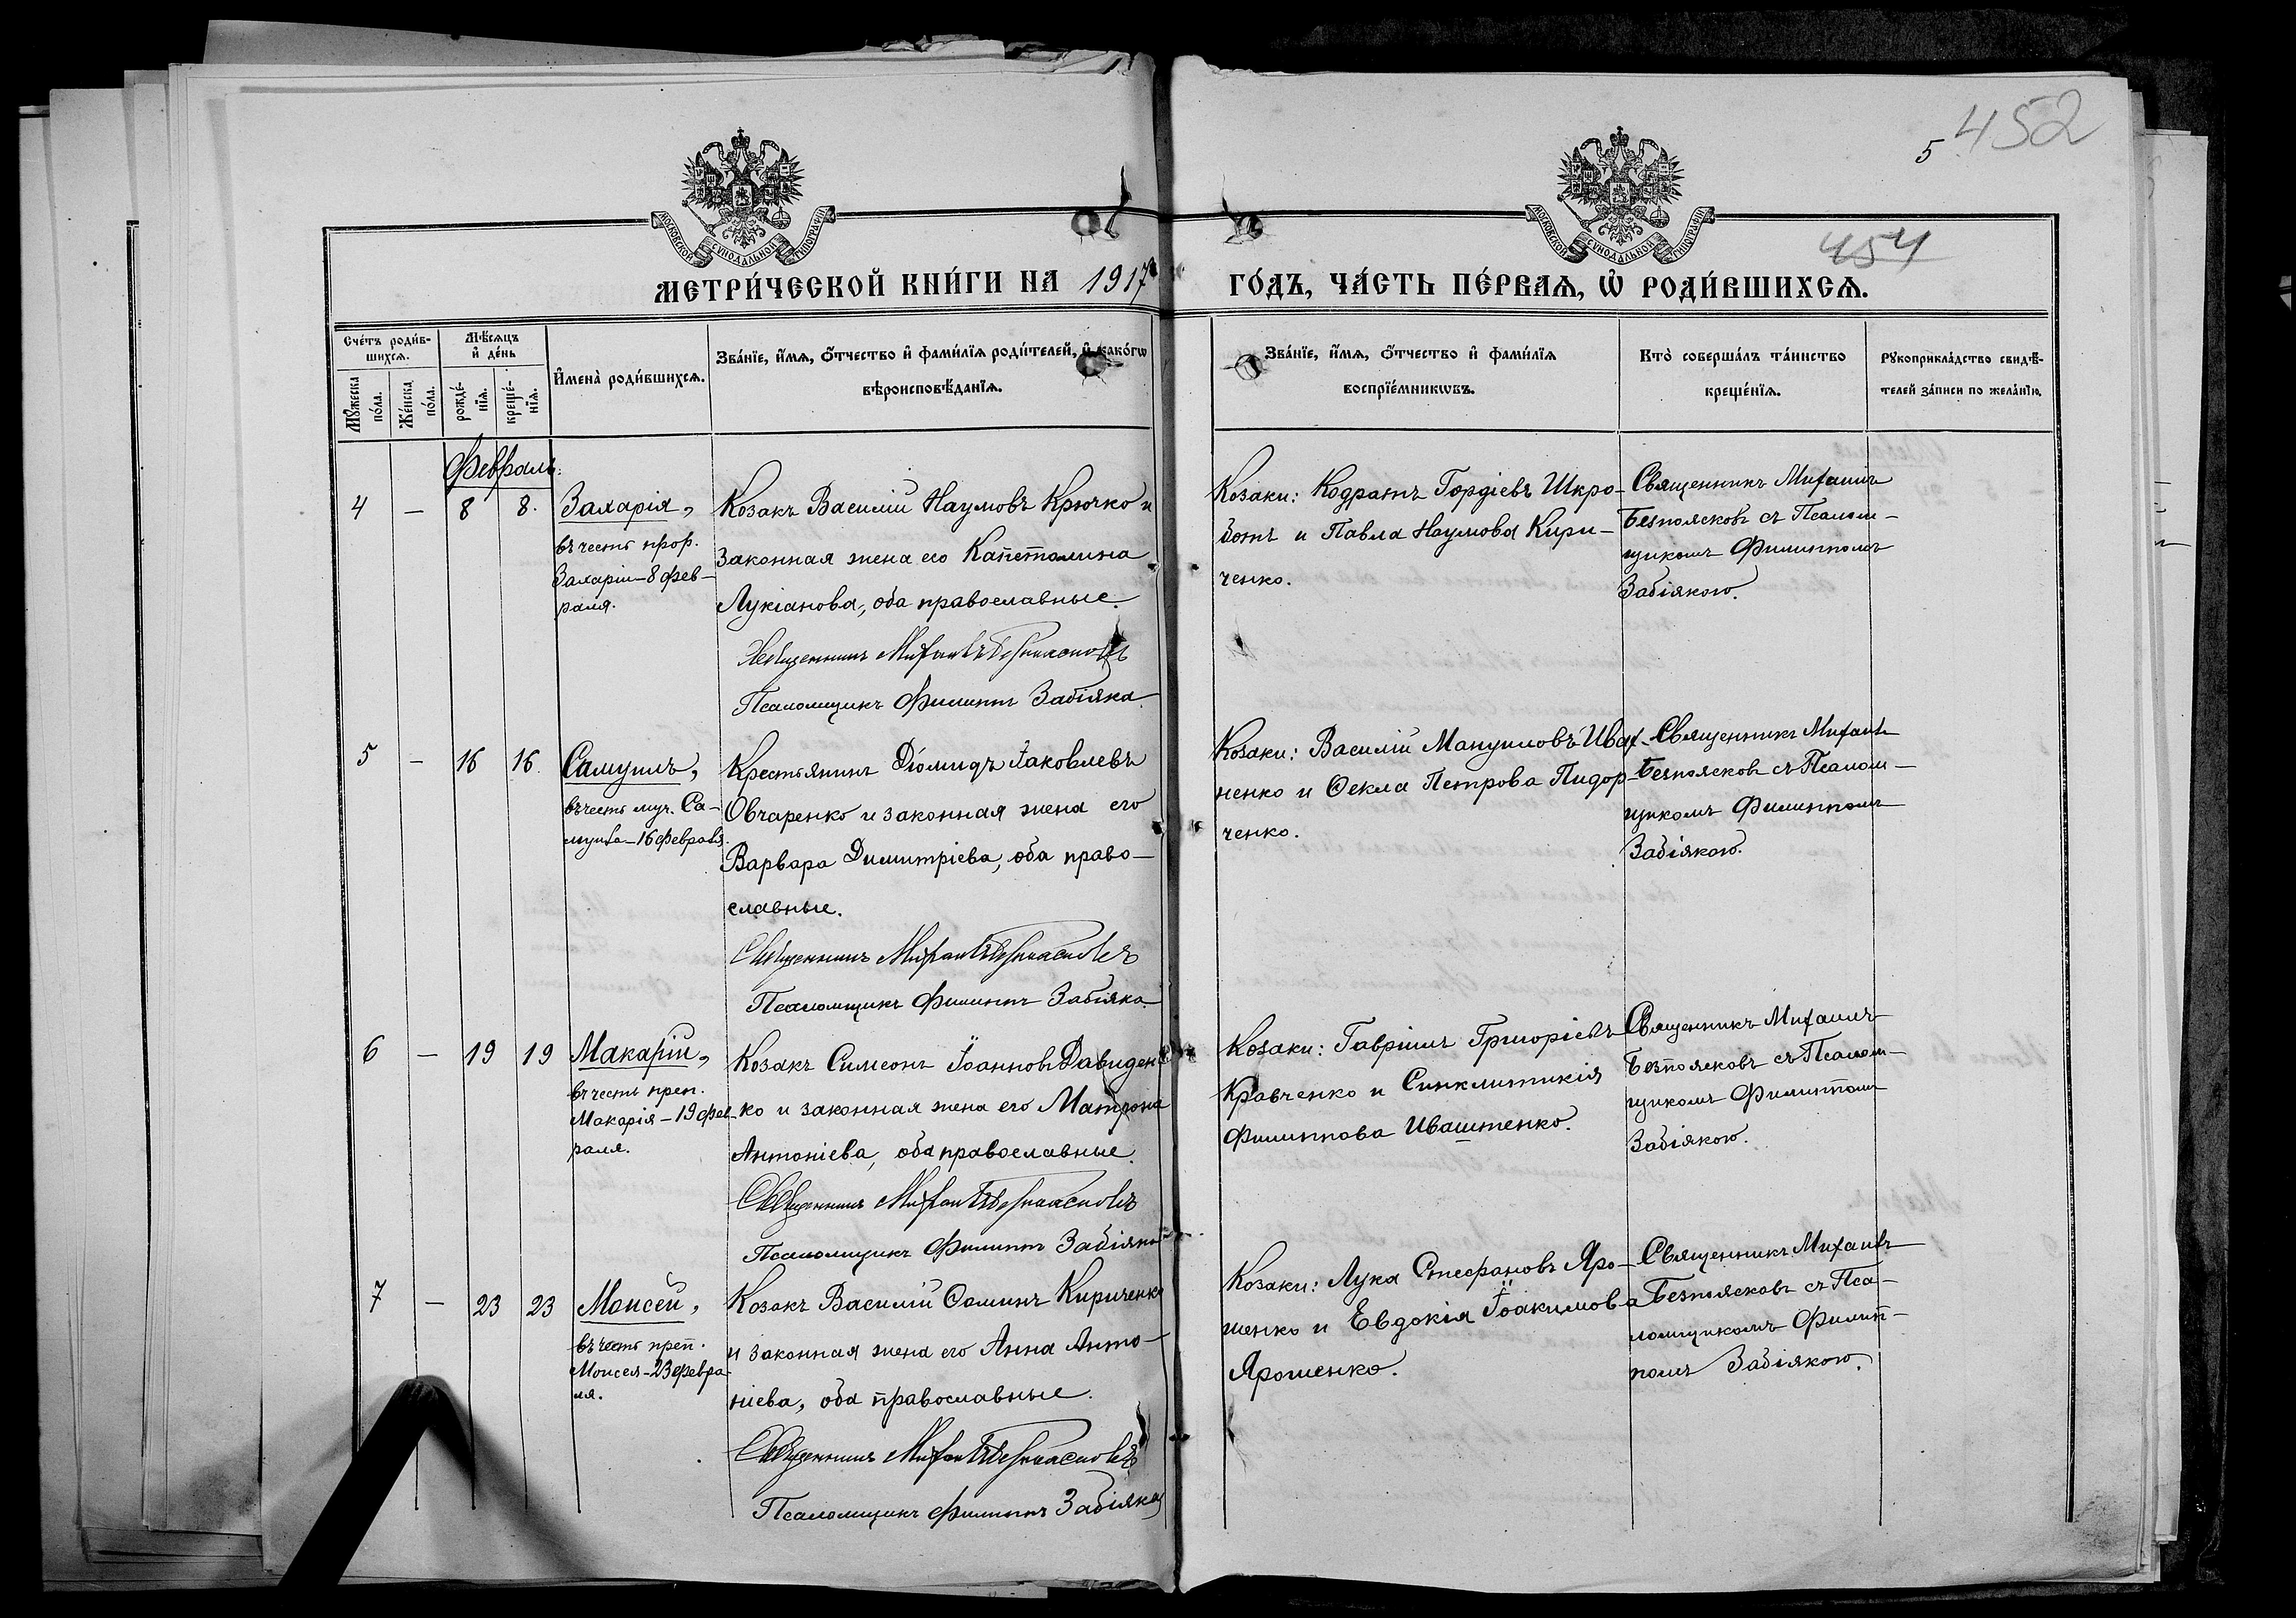 5 452
454
МОСКОВСКОЙ СѴНОДАЛЬНОЙ ТИПОГРАФІИ
МОСКОВСКОЙ СѴНОДАЛЬНОЙ ТИПОГРАФІИ
МЕТРИ́ЧЕСКОЙ КНИ́ГИ НА 1917 ГО́ДЪ, ЧА́СТЬ ПЕ́РВАѦ, Ѡ҆ РОДИ́ВШИХСѦ.
Сче́тъ роди́в-
шихсѧ.
Мꙋ́жеска по́ла.
Же́нска по́ла.
Мѣ́сѧцъ и҆ де́нь
рожде́-нїѧ.
креще́-нїѧ.
И҆мена̀ роди́вшихсѧ.
Зва́нїе, и҆́мѧ, ѻ҆́тчество и҆ фами́лїѧ роди́телей, и҆ како́гѡ
вѣроисповѣ́данїѧ.
Зва́нїе, и҆́мѧ, ѻ҆́тчество и҆ фами́лїѧ
воспрїе́мникѡвъ.
Кто̀ соверша́лъ та́инство
креще́нїѧ.
Рꙋкоприкла́дство свидѣ́-
телей за́писи по жела́нїю.
Февраль.
4 — 8 8.
Захарія,
въ честь прор.
Захаріи—8 фев-
раля.
Козакъ Василій Наумовъ Крючко и
законная жена его Капетолина
Лукіанова, оба православные.
Священникъ Михаилъ Безпоясковъ
Псаломщикъ Филиппъ Забіяка
Козаки: Кодратъ Гордіевъ Шкро-
ботъ и Павла Наумова Кири-
ченко.
Священникъ Михаилъ
Безпоясковъ съ Псалом-
щикомъ Филиппомъ
Забіякою.
5 — 16 16.
Самуилъ,
въ честь муч. Са-
муила—16 февраля.
Крестьянинъ Діомидъ Іаковлевъ
Овчаренко и законная жена его
Варвара Димитріева, оба право-
славные.
Священникъ Михаилъ Безпоясковъ
Псаломщикъ Филиппъ Забіяка
Козаки: Василій Мануиловъ Ивах-
ненко и Ѳекла Петрова Пидор-
ченко.
Священникъ Михаилъ
Безпоясковъ съ Псалом-
щикомъ Филиппомъ
Забіякою.
6 — 19 19
Макарій,
въ честь преп.
Макарія—19 фев-
раля.
Козакъ Симеонъ Іоанновъ Давиден-
ко и законная жена его Матрона
Антоніева, оба православные.
Священникъ Михаилъ Безпоясковъ
Псаломщикъ Филиппъ Забіяка
Козаки: Гавріилъ Григоріевъ
Кравченко и Синклитикія
Филиппова Иваштенко.
Священникъ Михаилъ
Безпоясковъ съ Псалом-
щикомъ Филиппомъ
Забіякою.
7 — 23 23
Моисей,
въ честь преп.
Моисея—23 февра-
ля.
Козакъ Василій Ѳоминъ Кириченко
и законная жена его Анна Анто-
ніева, оба православные.
Священникъ Михаилъ Безпоясковъ
Псаломщикъ Филиппъ Забіяка
Козаки: Лука Стефановъ Яро-
шенко и Евдокія Іоакимова
Ярошенко.
Священникъ Михаилъ
Безпоясковъ съ Пса-
ломщикомъ Филип-
помъ Забіякою.